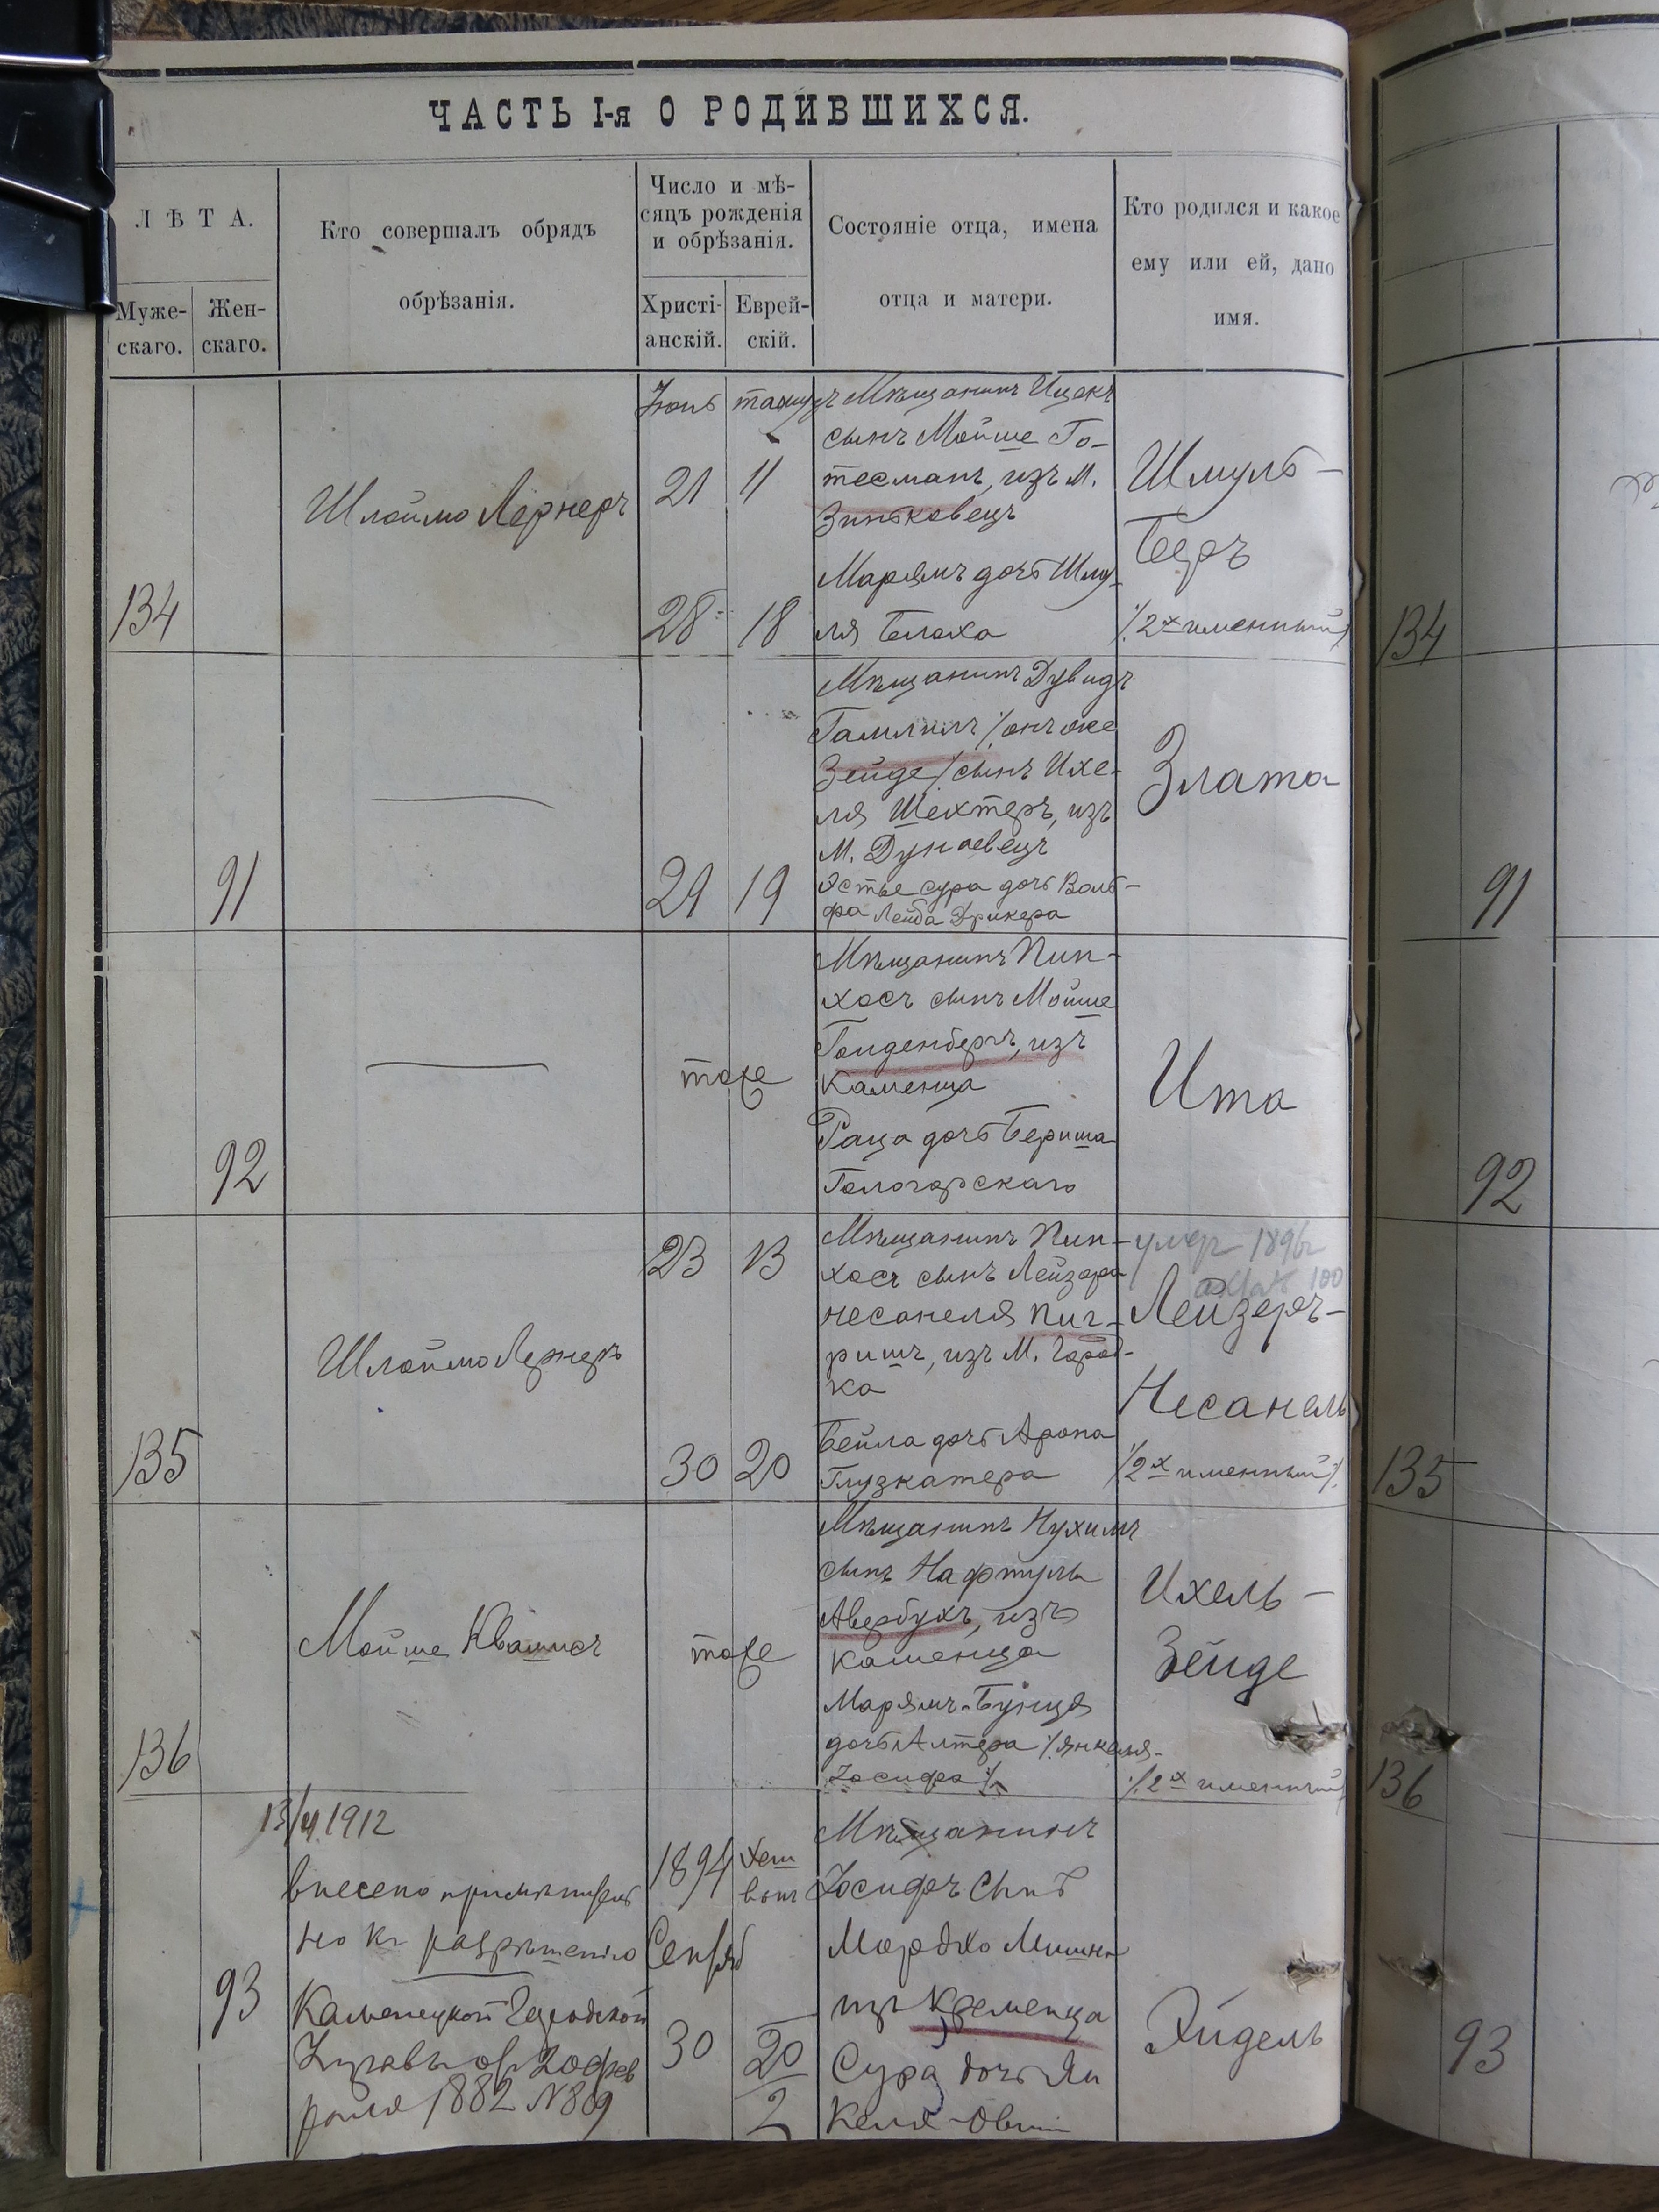 ЧАСТЬ I-я О РОДИВШИХСЯ.
ЛѢТА.
Муже-
скаго.
Жен-
скаго.
Кто совершалъ обрядъ
обрѣзанія.
Число и мѣ-
сяцъ рожденія
и обрѣзанія.
Христі-
анскій.
Еврей-
скій.
Состояніе отца, имена
отца и матери.
Кто родился и какое
ему или ей, дано
имя.
134
Шлоймо Лернеръ
Іюнь
21
28
11
18
Мѣщанинъ Ицекъ
сынъ Мойше Го-
тесманъ, изъ М.
Зиньковецъ
Марьямъ дочь Шму-
ля Блоха
Шмуль-
Беръ
/2х именный/
134
91
29 19
Мѣщанинъ Дувидъ
/онъ же
Зейде/ сынъ Ихе-
ля Шехтеръ, изъ
М. Дунаевецъ
Эстье сура дочь Воль-
фа Лейба Дрикера
Злата
91
92
тоже
Мѣщанинъ Пин-
хосъ сынъ Мойше
Голденбергъ, изъ
Каменца
Раца дочь Бериша
Гологорскаго
Ита
92
135
Шлоймо Лернеръ
23 13
30 20
Мѣщанинъ Пин-
хосъ сынъ Лейзера
Несанеля Пиг-
ришъ, изъ М. Город-
ка
Бейла дочь Арона
Глузкатера
умеръ 1896
100
Лейзеръ-
Несанель
/2х именный/
135
136
Мойше
тоже
Мѣщанинъ Нухимъ
сынъ Нафтулы
Авербухъ, изъ
Каменца
Марьямъ-Бунця
дочь Алтера /Янкеля-
Іосифа/
Ихель-
Зейде
/2х именный/
136
13/4 1912
93
внесено примѣнитель
но къ разрѣшенію
Каменецкой Городской
Управы от 20 фев
раля 1882 N 809
1894
Сентяб
30
Хеш
вонъ
20
2
Мѣщанинъ
Іосифъ Сынъ
Мордхо
изъ Кременца
Сура дочь Ян
келя
Эйдель
93